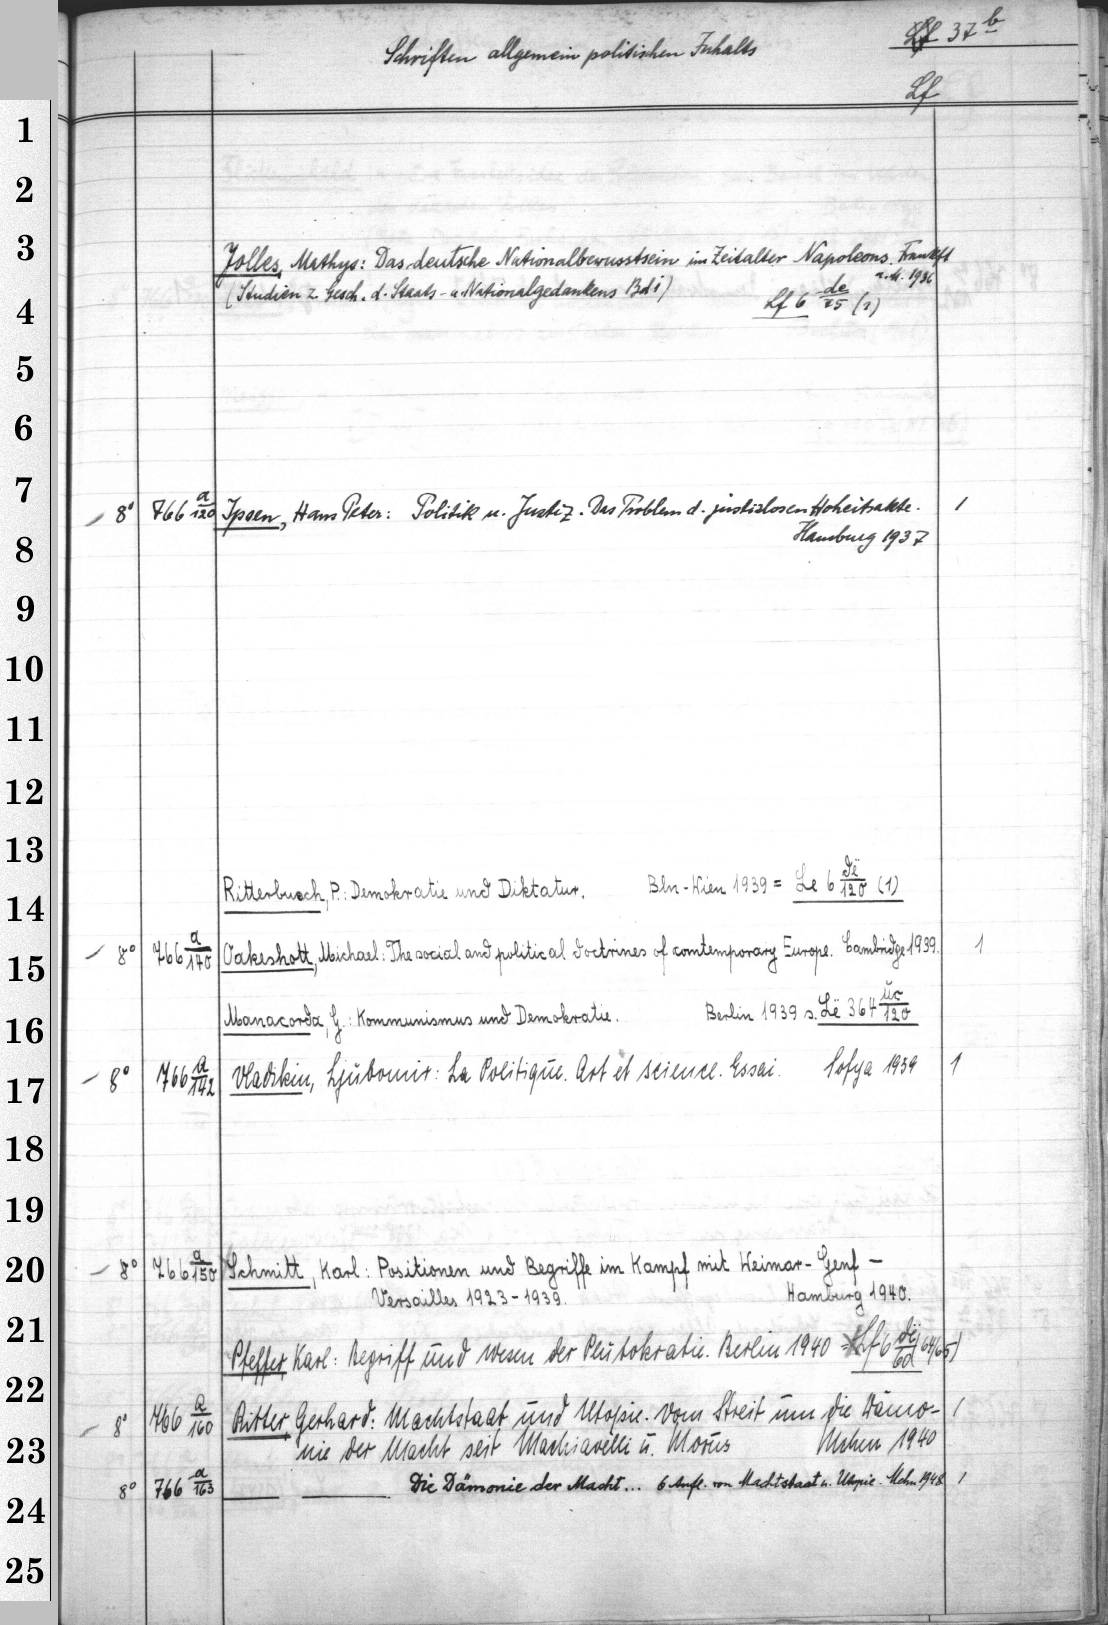 Lf 37 b
Schriften allgemein politischen Inhalts
Lf
1
2
3
Jolles, Mathys: Das deutsche Nationalbewusstsein im Zeitalter Napoleons. Frankft
a. M. 1936
(Studien z. Gesch. d. Staats- u. Nationalgedankens Bd 1)
Lf 6 de/75 (1)
4
5
6
7
8° 766 a/120 Ipsen, Hans Peter: Politik u. Justiz. Das Problem d. justizlosen Hoheitsakte. 1
Hamburg 1937
8
9
10
11
12
13
Ritterbusch, P.: Demokratie und Diktatur. Bln-Wien 1939 = Le 6 dë/120 (1)
14
8° 766 a/140 Oakeshott, Michael: The social and political doctrines of contemporary Europe. Cambridge 1939. 1
15
Manacorda, G.: Kommunismus und Demokratie. Berlin 1939 s. Lë 364 üc/120
16
8° 766 a/142 Vladikin, Ljubomir: La Politique. Art et science. Essai. Sofya 1939 1
17
18
19
20
8° 766 a/150 Schmitt, Karl: Positionen und Begriffe im Kampf mit Weimar-Genf –
Versailles 1923-1939. Hamburg 1940.
21
Pfeffer Karl: Begriff und Wesen der Plutokratie. Berlin 1940 = Lf 6 dë/60 (64/65)
22
8° 766 a/160 Ritter, Gerhard: Machtstaat und Utopie. Vom Streit um die Dämo- 1
nie der Macht seit Machiavelli u. Morus Mchen 1940
23
8° 766 a/163 Die Dämonie der Macht... 6 Aufl. von Machtstaat u. Utopie. Mchn 1948 1
24
25